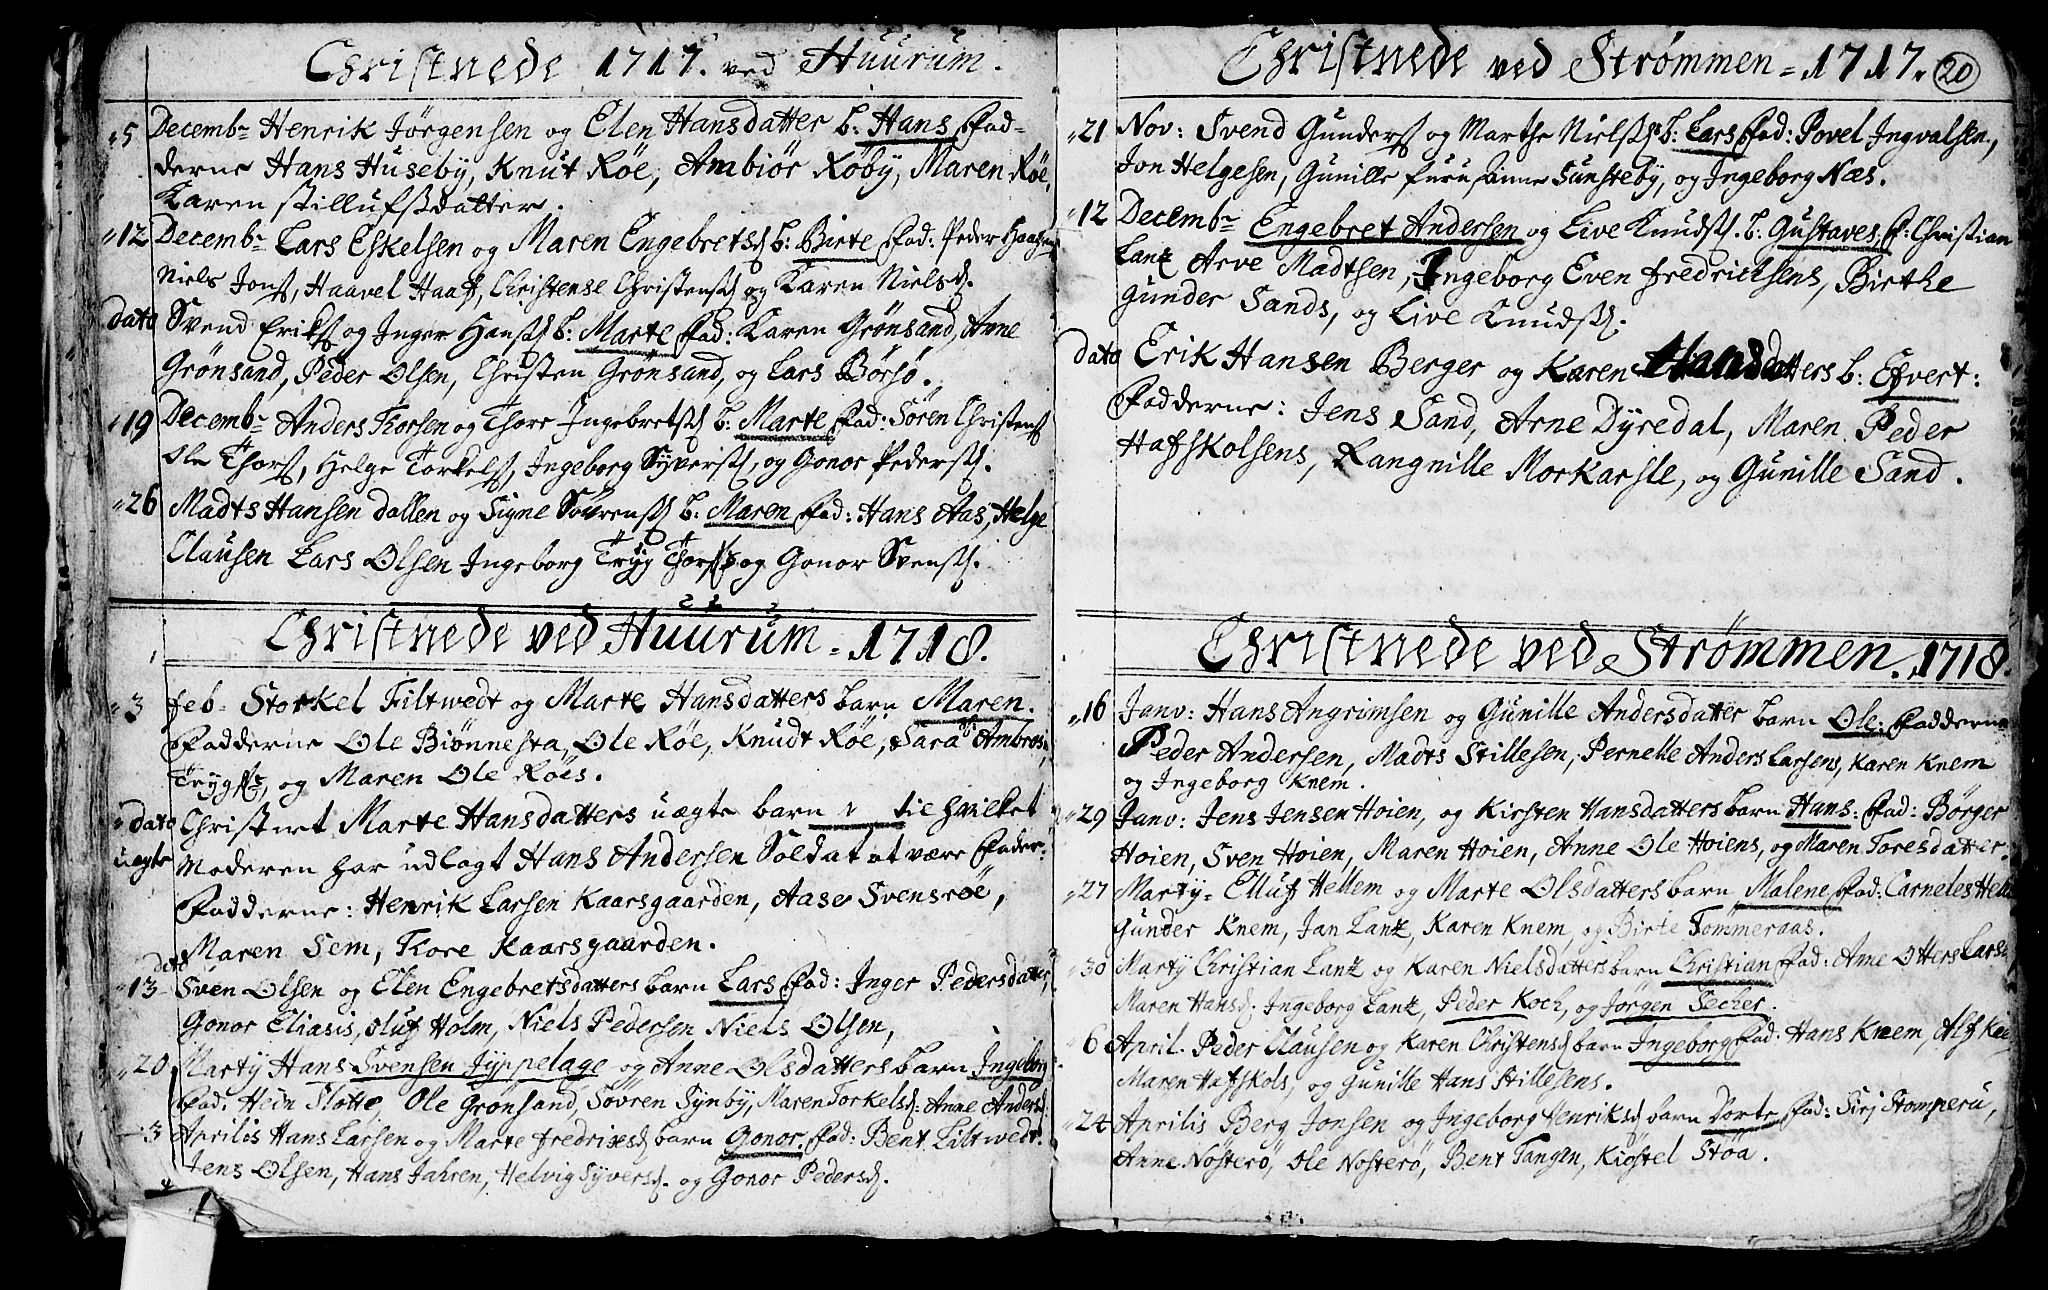 Christnede 1717. ved Huurum.
5 Decemb: Henrik Jörgensen og Elen Hansdatter b: Hans Fad-
derne Hans Huseby, Knut Röe, Ambiör Röby, Maren Röe,
Karen Stillufsdatter.
12 Decemb: Lars Eskelsen og Maren Engebretsd b: Birte Fad: Peder
Niels Jons, Haavel Haaf, Christense Christensd og Karen Nielsd.
dato Svend Eriks og Inger Hansd b: Marte Fad: Karen Grönsand, Anne
Grönsand, Peder Olsen, Christen Grönsand, og Lars Börsö.
19 Decemb: Anders Thorsen og Thore Ingebretsd b: Marte Fad: Sören Christens
Ole Thors, Helge Torkels, Ingeborg Syversd, og Gonor Pedersd.
26 Madts Hansen Dallen og Signe Sövrensd b: Maren Fad: Hans Aas, Helge
Clausen Lars Olsen Ingeborg Tryg Thors og Gonor Svensd.
Christnede ved Huurum - 1718.
3 Feb: Storkel Tiltwedt og Marte Hansdatters barn Maren.
Fadderne Ole Biönnesta, Ole Röe, Knudt Röe, Sara Ambros
Trygs, og Maren Ole Röes.
dato Christnet Marte Hansdatters uægte barn til hvilket
uægte Moderen har udlagt Hans Andersen Soldat at være Fader:
Fadderne: Henrik Larsen Kaarsgaarden, Aase Svensröe,
Maren Sem, Tore Kaarsgaarden.
dato
13 Sven Olsen og Elen Engebretsdatters barn Lars Fad: Inger Pedersdatter,
Gonor Eliasis, Oluf Holm, Niels Pedersen Niels Olsen,
20 Marty Hans Svensen Jyppelage og Anne Olsdatters barn Ingeborg
Fad: Hein Slotte, Ole Grönsand, Sövren Synby, Maren Torkelsd: Anne Andersd:
3 Aprilis Hans Larsen og Marte Fredrixsd barn Gonor Fad: Bent Tiltwedt.
Jens Olsen, Hans Jahren, Helvig Syversd. og Gonor Pedersd.
Christnede ved Strømmen - 1717. 20
21 Nov: Svend Gunders og Marthe Nielsd b: Lars Fad: Povel Ingvalsen,
Jon Helgesen, Gunille Furu, Anne Sunsteby, og Ingeborg Næs.
12 Decemb: Engebret Andersen og Live Knudsd b: Gustaves F: Christian
Lantz Arve Madtsen, Ingeborg Even Fredrichsens, Birthe
Gunder Sands, og Live Knudsd:
dato Erik Hansen Berger og Karen Hansdatters b: Efvert:
Fadderne: Jens Sand, Arne Dyredal, Maren Peder
Hafskolsens, Rangnille Morkarsle, og Gunille Sand.
Christnede ved Strømmen. 1718.
16 Janv: Hans Angrimsen og Gunille Andersdatter barn Ole: Fadderne
Peder Andersen, Madts Stillesen, Pernelle Anders Larsens, Karen Knem
og Ingeborg Knem.
29 Janv: Jens Jensen Hoien, og Kirsten Hansdatters barn Hans: Fad: Börger
Hoien, Sven Hoien, Maren Hoien, Anne Ole Hoiens, og Maren Toresdatter.
27 Marty: Elluf Hellem og Marte Olsdatters barn Malene Fad: Carneles
Gunder Knem, Jan Lantz, Karen Knem, og Birte Tömmeraas.
30 Marty Christian Lantz og Karen Nielsdatters barn Christian Fad: Anne Otters Larsd
Maren Hansd: Ingeborg Lantz, Peder Koch, og Jörgen Secher.
6 April. Peder Clausen og Karen Christensd barn Ingeborg Fad: Hans Knem, Alf
Maren Hafskols, og Gunille Hans Stillesens.
24 Aprilis Berg Jonsen og Ingeborg Henriksd barn Dorte Fad: Sirj Stomperu,
Anne Nösterö, Ole Nosterö, Bent Tangen, Kiöstel Stöa.